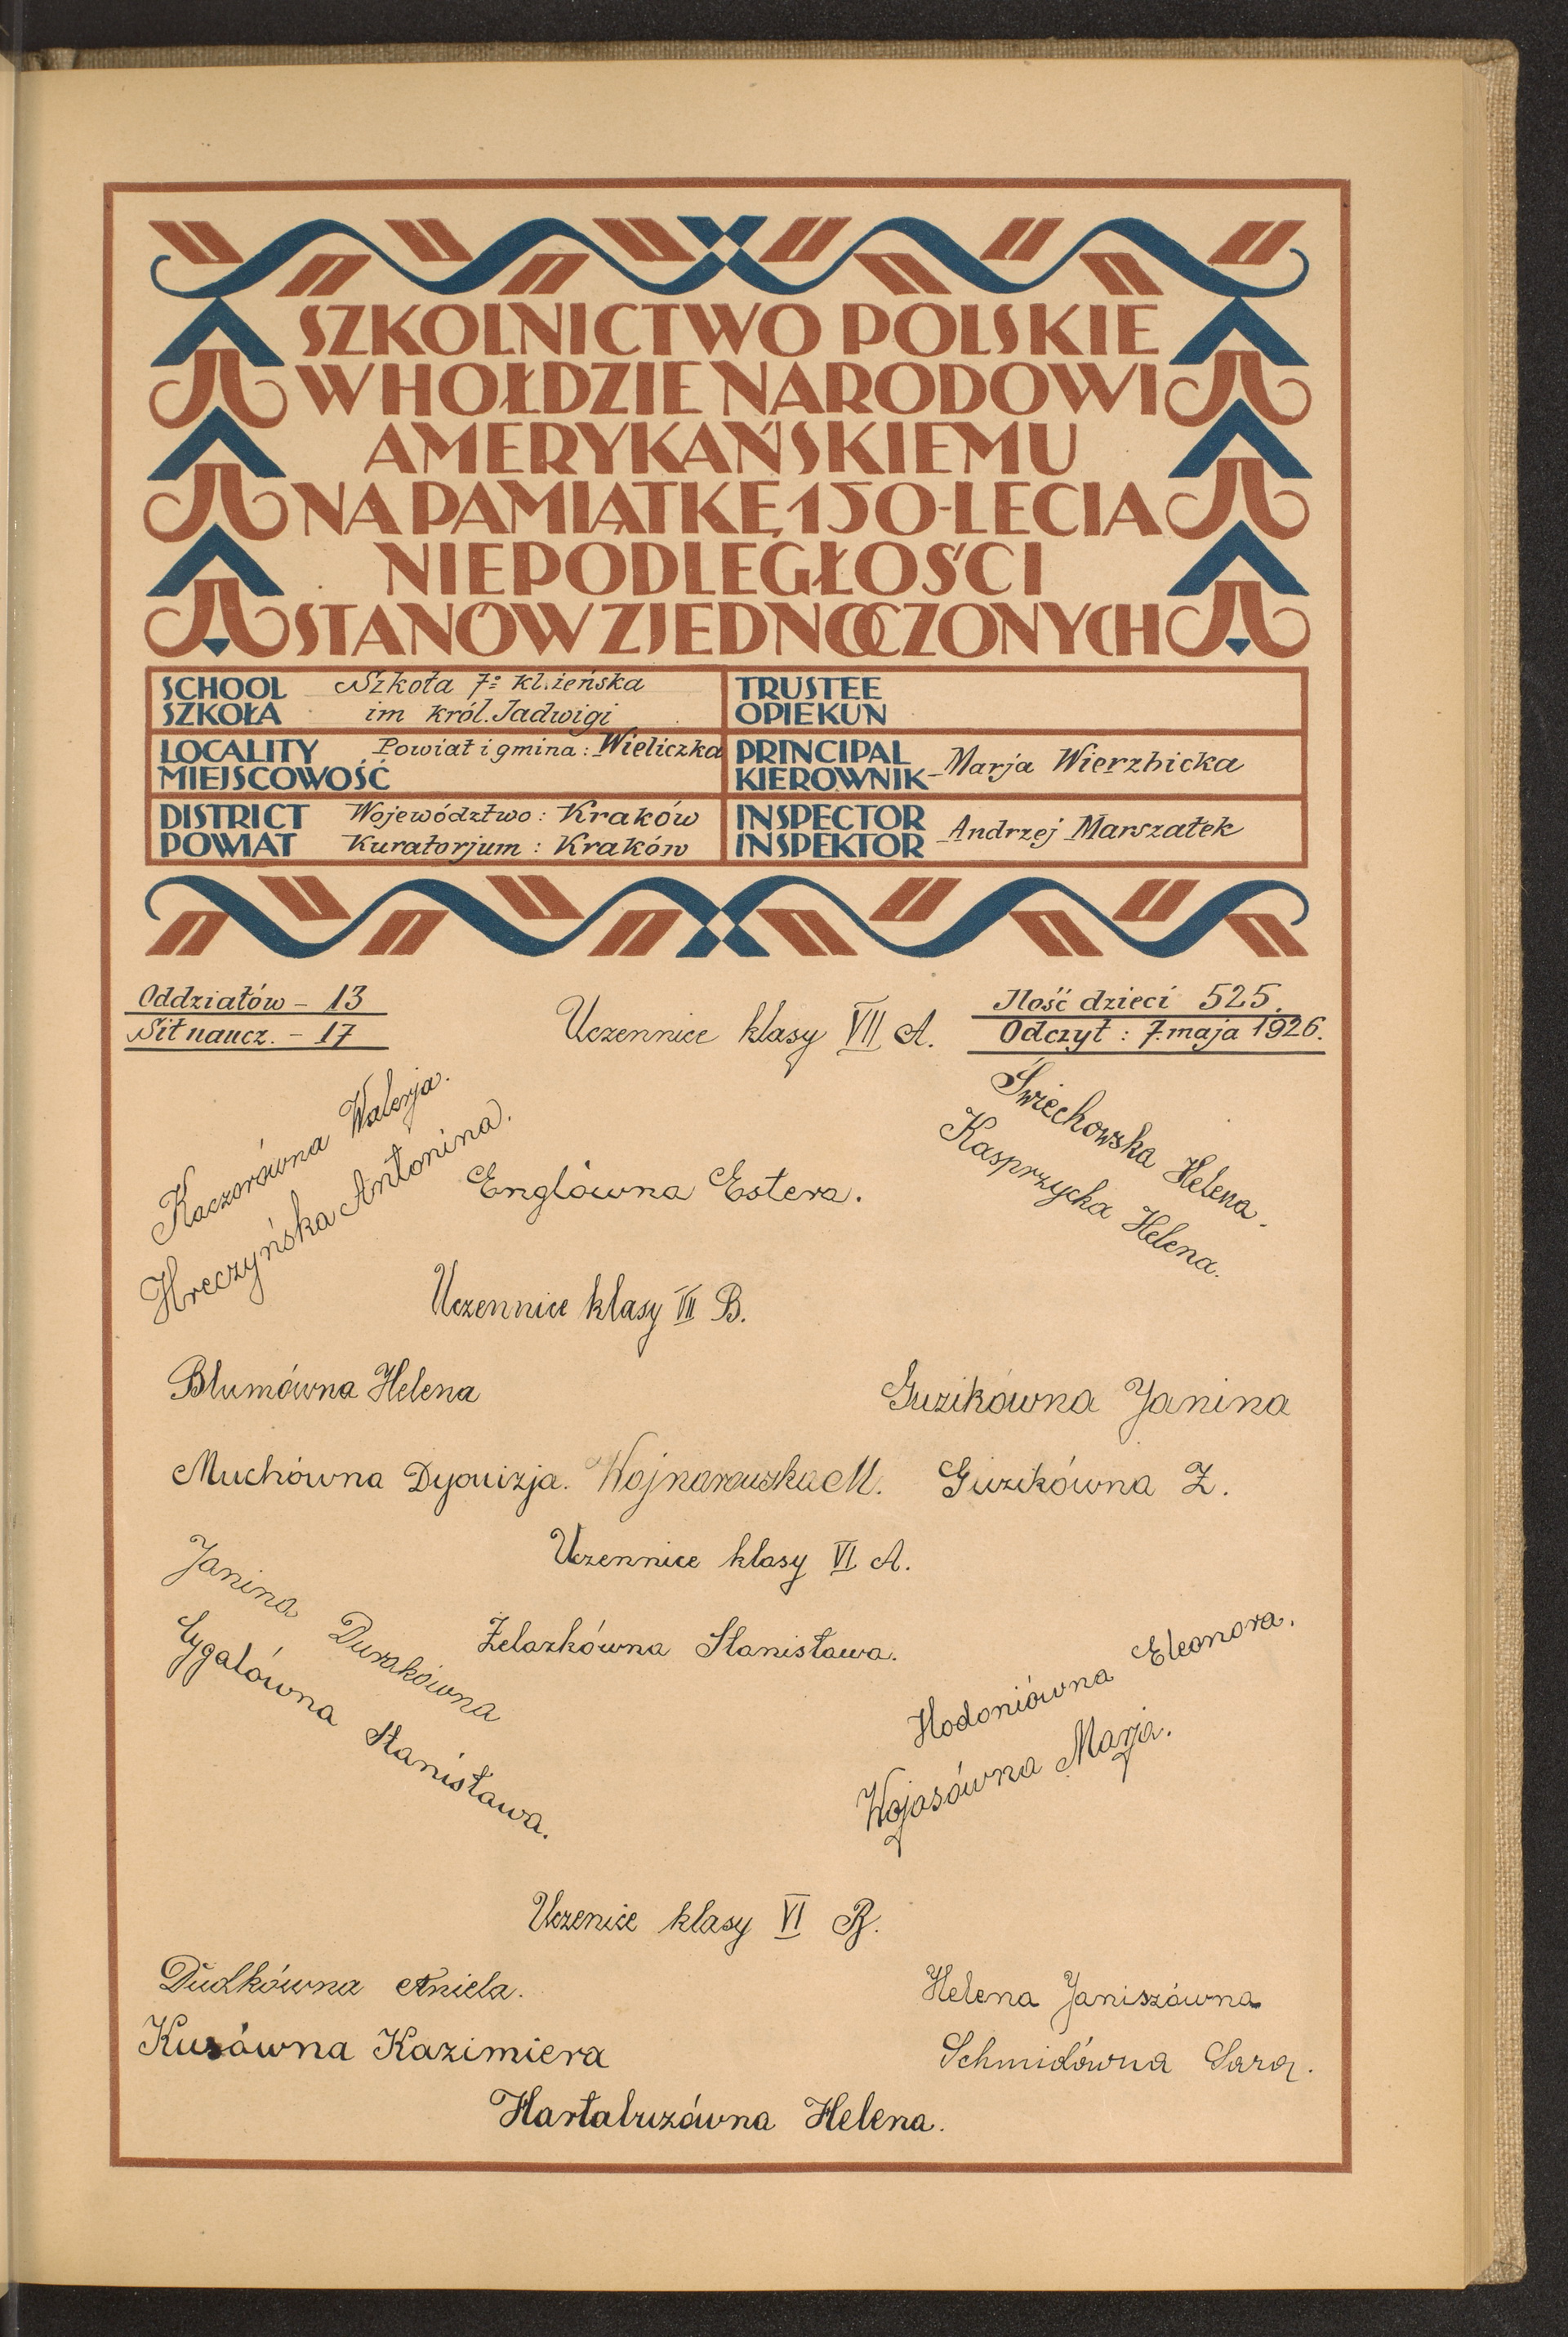 SZKOLNICTWO POLSKIE
W HOŁDZIE NARODOWI
AMERYKAŃSKIEMU
NA PAMIĄTKĘ 150-LECIA
NIEPODLEGŁOŚCI
STANÓW ZJEDNOCZONYCH
SCHOOL
SZKOŁA
Szkoła 7= kl. żeńska
im król. Jadwigi
TRUSTEE
OPIEKUN
LOCALITY
MIEJSCOWOŚĆ
Powiat i gmina: Wieliczka
PRINCIPAL
KIEROWNIK
Marja Wierzbicka
DISTRICT
POWIAT
Województwo: Kraków
Kuratorjum: Kraków
INSPECTOR
INSPEKTOR
Andrzej Marszałek
Oddziałów - 13
Sił naucz. - 17
Uczennice klasy VII A.
Ilość dzieci 525.
Odczyt: 7. maja 1926.
Kaczorówna Walerja.
Hreczyńska Antonina.
Englówna Estera.
Świechowska Helena.
Kasprzycka Helena.
Uczennice klasy VII B.
Blumówna Helena
Guzikówna Janina
Muchówna Dyonizja.
Wojnarowska M.
Guzikówna Z.
Uczennice klasy VI A.
Janina Durakówna
Cygalówna Stanisława.
Żelazkówna Stanisława.
Hodoniówna Eleonora.
Wojasówna Marja.
Uczenice klasy VI B.
Dudkówna Aniela.
Kusówna Kazimiera
Helena Janiszówna
Schmidówna Sara.
Hartabuzówna Helena.